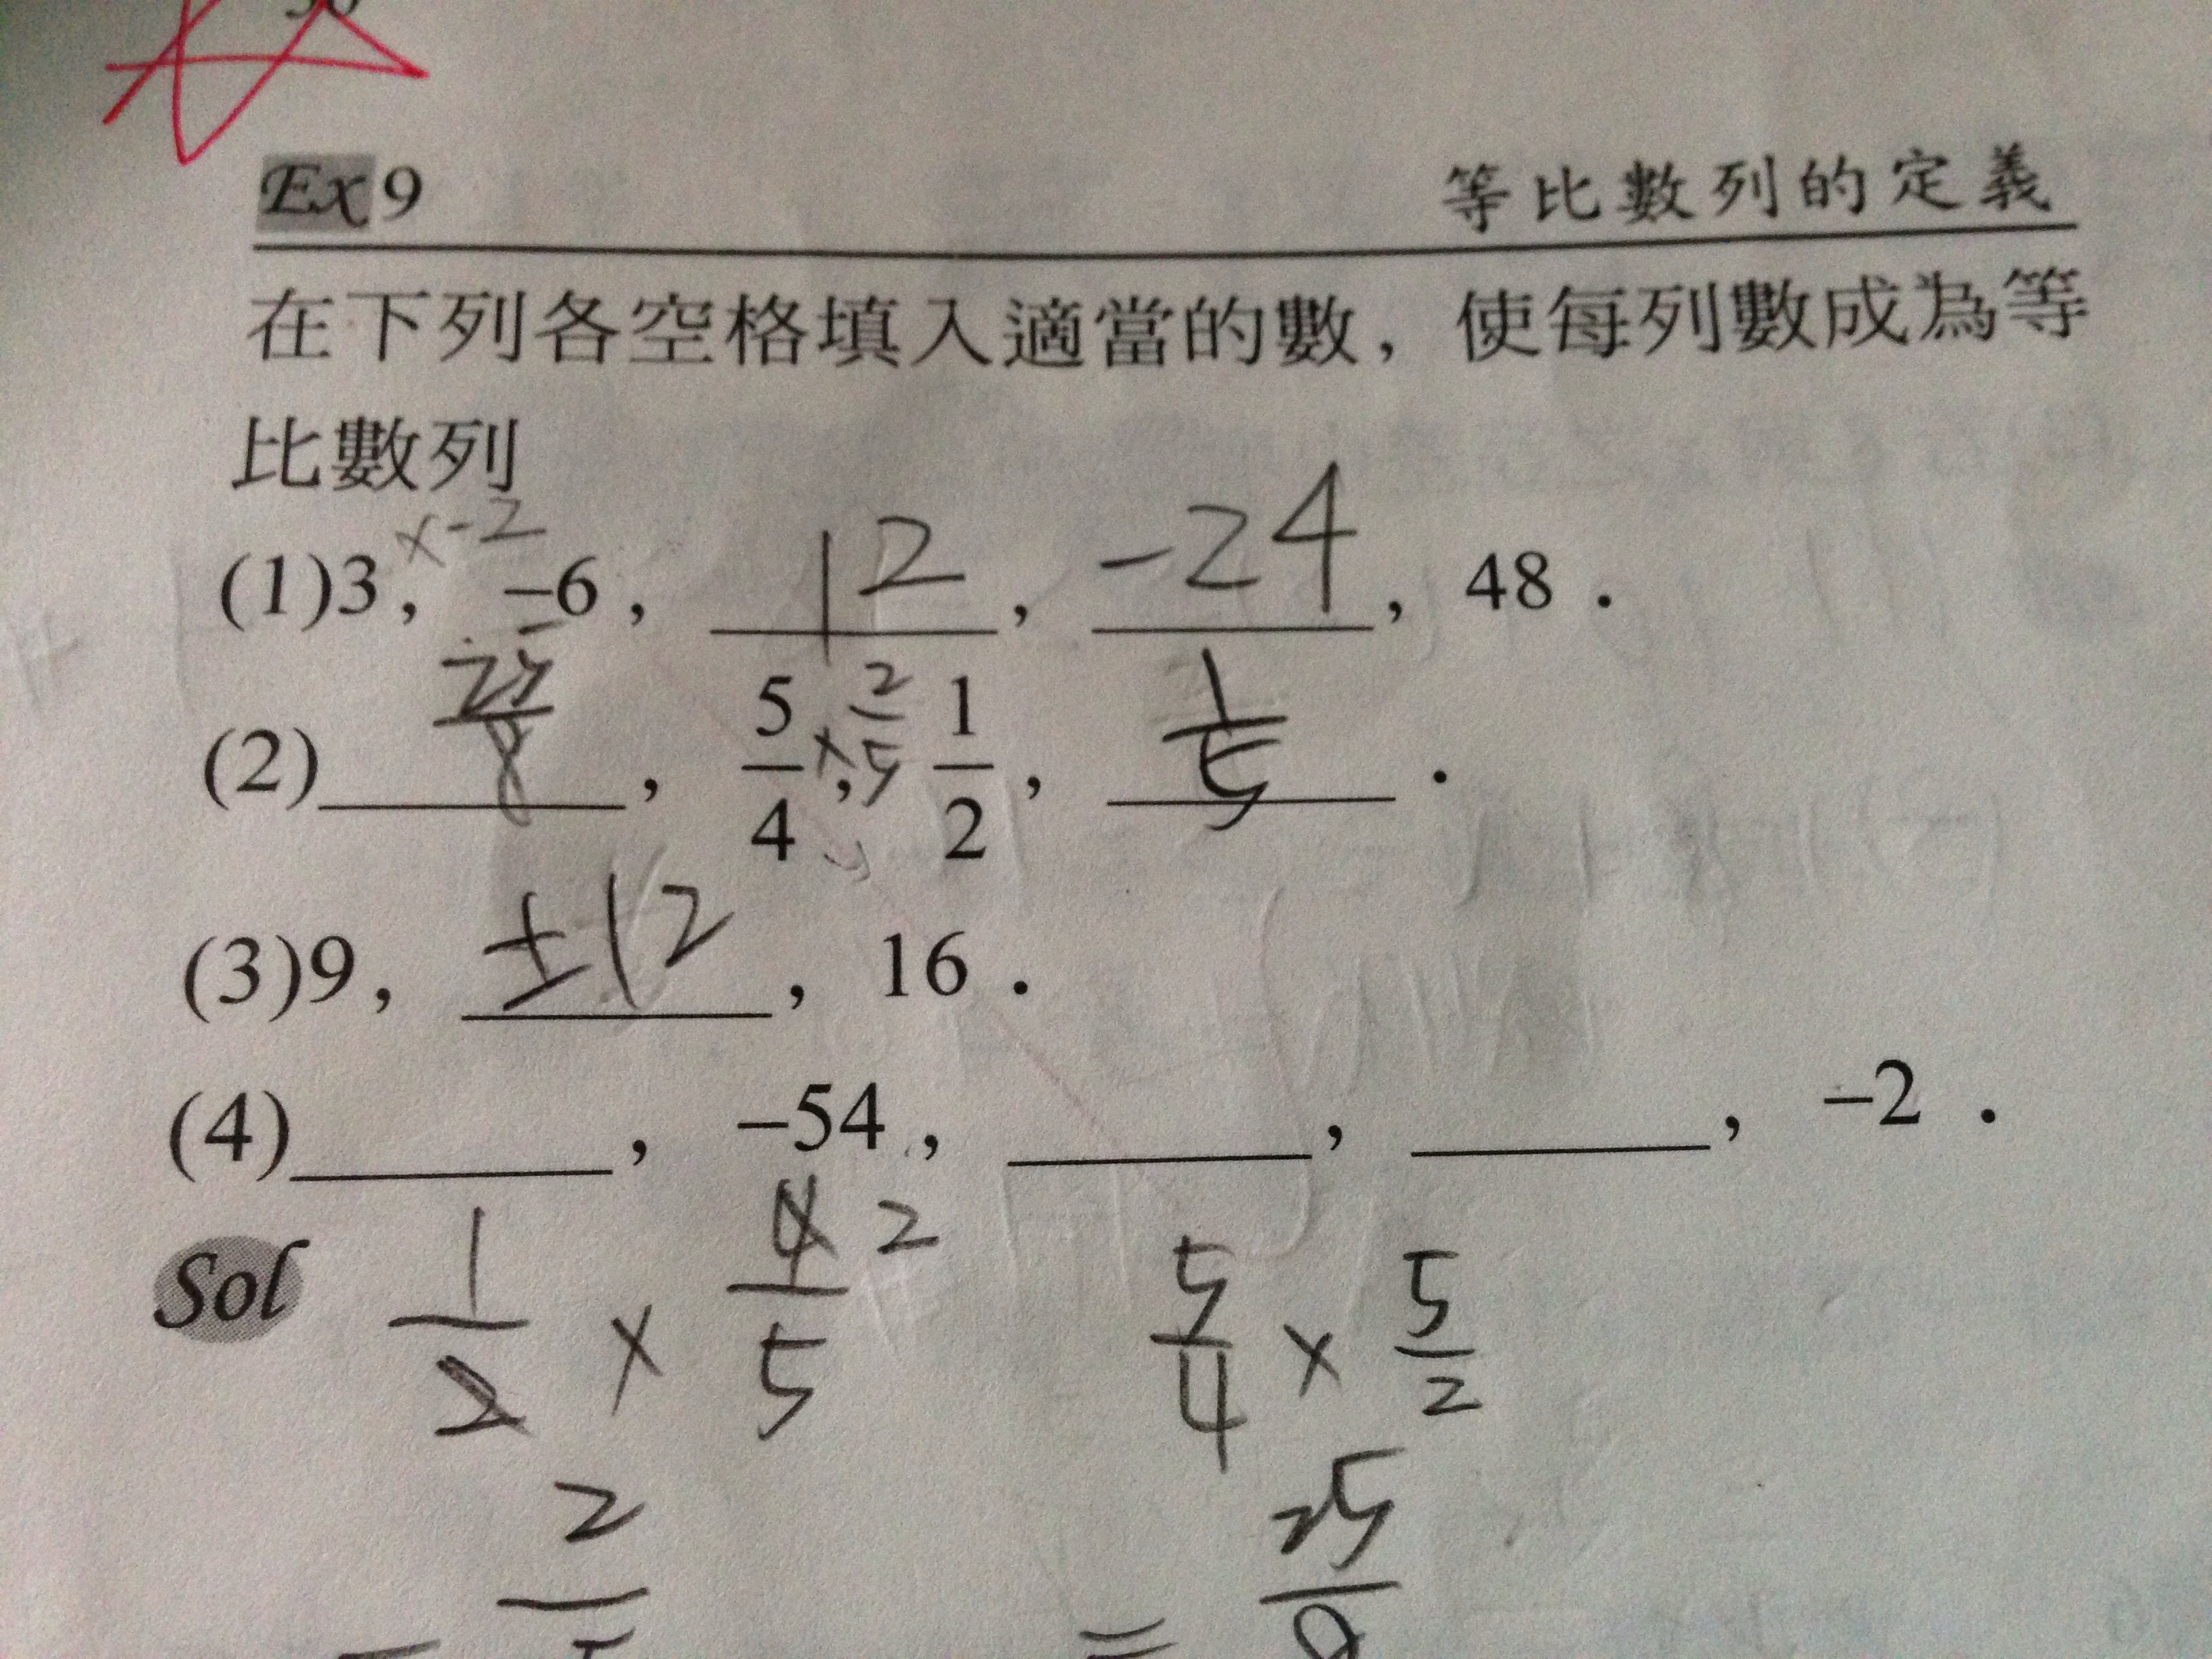 Ex 9 等比數列的定義
在下列各空格填入適當的數，使每列數成為等
比數列
×-2
(1)3， -6， 12， -24， 48．
(2) 25/8， 5/4 ×2/5， 1/2， 1/5．
(3)9， ±12， 16．
(4)______， -54， ______， ______， -2．
Sol 1/2 × 4/5 2 5/4 × 5/2
2 = 25/8